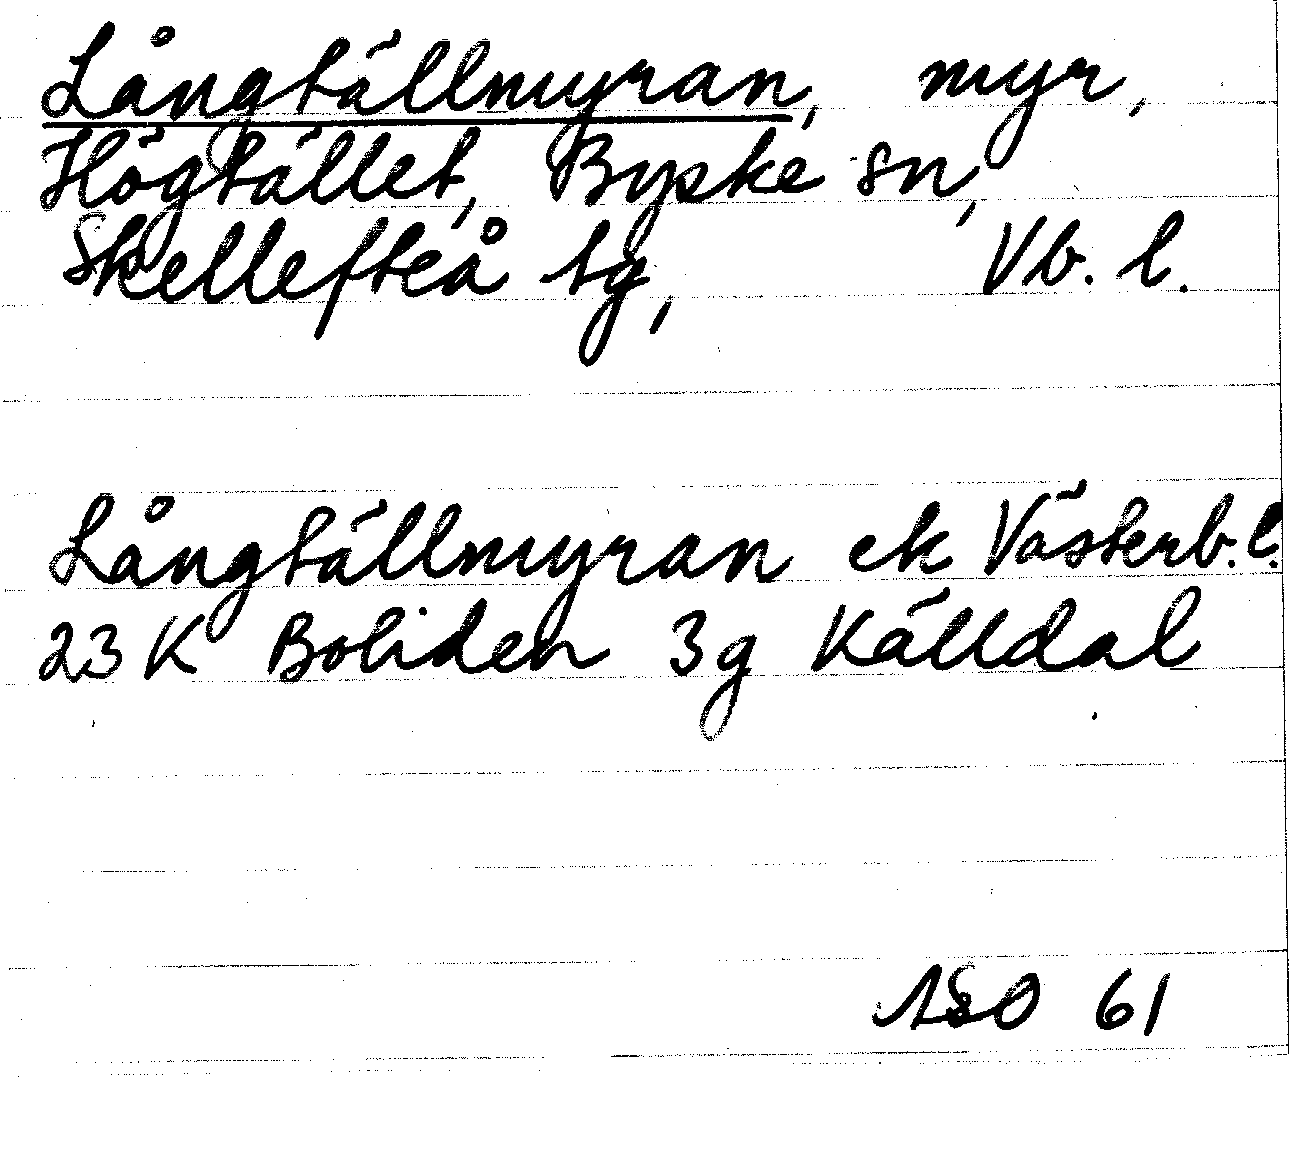 Långtällmyran, myr,
Högtället, Byske sn,
Skellefteå tg, Vb. l.
Långtällmyran ek Västerb. l.
23 K Boliden 3g Källdal
ASO 61